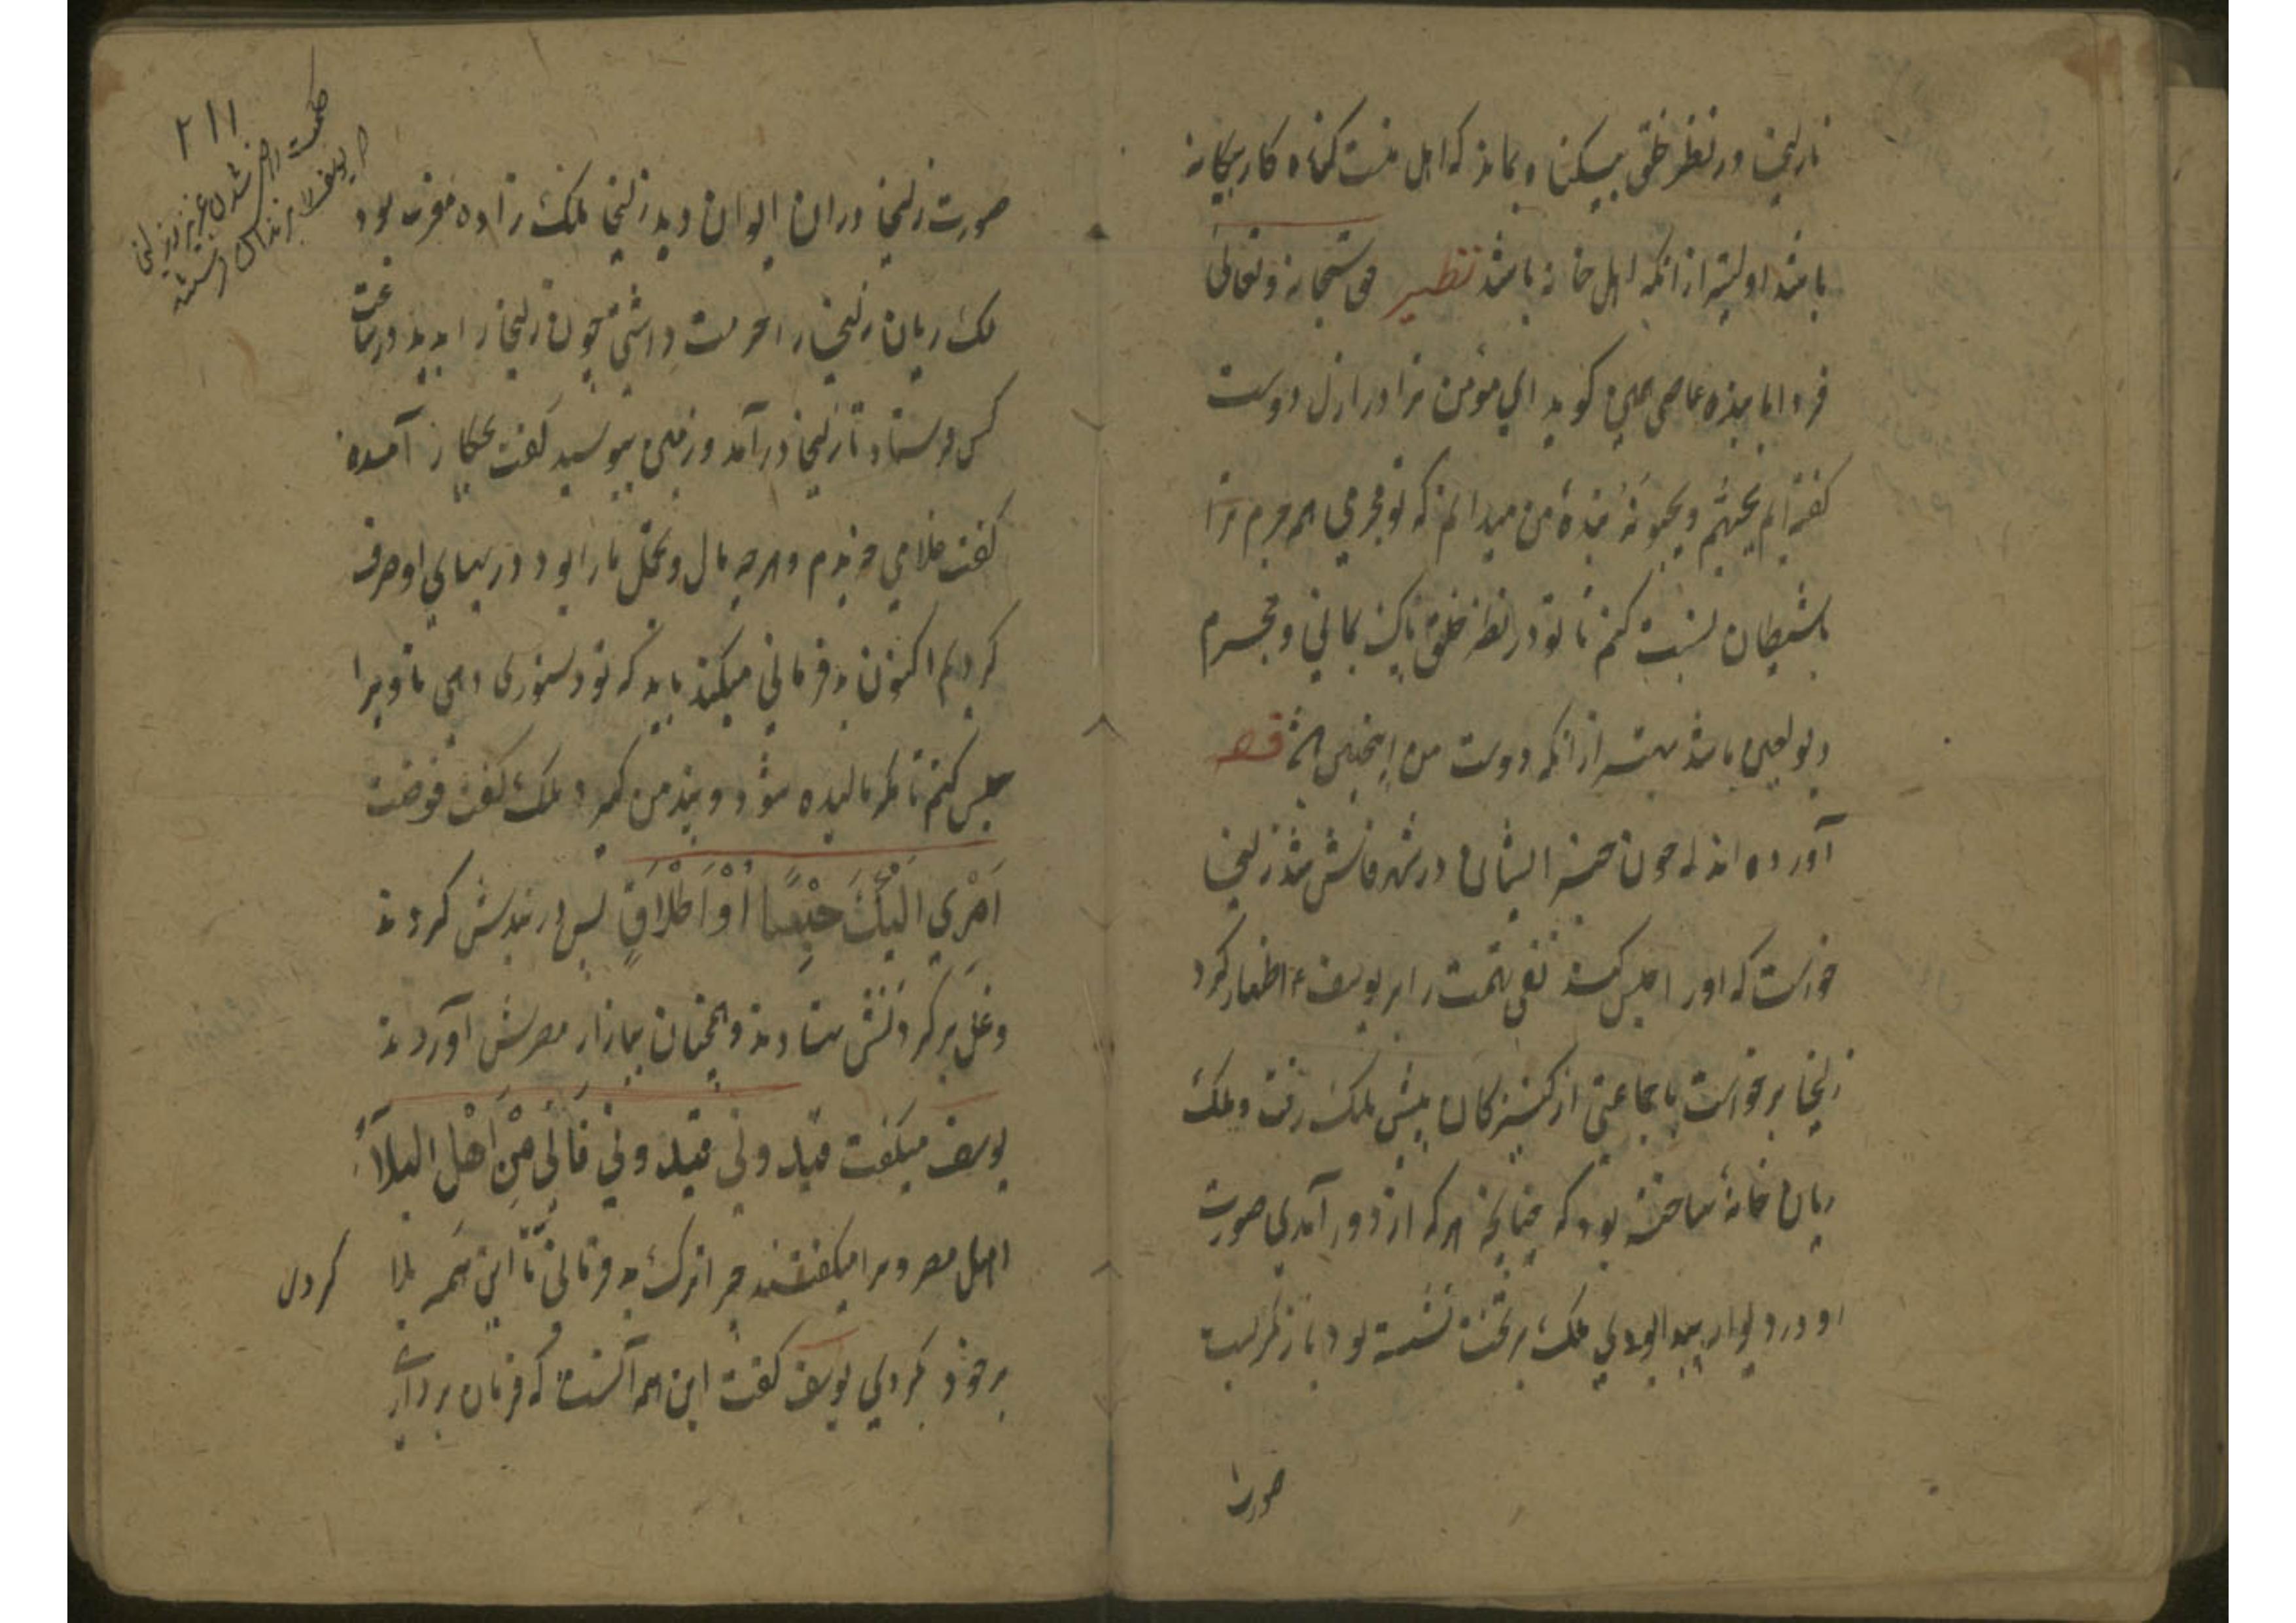 تا زلیخا در نظر خلق بیگناه بماند که اهل منت گناه کار بیگانه
باشد اولیتر از انکه اهل خانه باشد نظیر حق سبحانه و تعالی
فردا با بنده عاصی همین کوید ای مومن ترا در ازل دوست
گفته ایم یحبهم و یحبونه بنده من میدانم که تو مجرمی اما جرم ترا
با شیطان نسبت کنم تا تو در نظر خلق پاک بمانی و مجرم
دیو لعین باشد بهتر از انکه دوست من قصه
آورده اند که چون خبر ایشان در شهر فاش شد زلیخا
خواست که او را حبس کند نفی تهمت را بر یوسف ع اظهار کرد
زلیخا برخواست با جماعتی از کنیزکان پیش ملک رفت و ملک
ریان خانهٔ ساخته بود که چنانچه هر که از در در آمدی صورت
او در دیوار پیدا بودی ملک بر تخت نشسته بود باز نگریست
صورت
۲۱۱
صورت زلیخا دران ایوان دید زلیخا ملک زاده مغرب بود
ملک ریان زلیخا را حرمت داشتی چون زلیخا را بدید در ساعت
کس فرستاد تا زلیخا درآمد و زمین ببوسید گفت بچکار آمدهٔ
گفت غلامی خریدم و هرچه مال و تجمل ما را بود در بهای او صرف
کردیم اکنون بد فرمانی میکند باید که تو دستوری دهی تا ویرا
حبس کنم تا مگر مالیده شود و پند من گیرد ملک گفت فوضت
اَمْرِي اِلَيْكَ حَبْسًا اَوْ اَطْلَاقٍ پس در بندش کردند
و غل بر گردنش نهادند و همچنان ببازار مصرش آوردند
یوسف میگفت قید ولی قید ولی فَاِنِّي مِنْ اَهْلِ البلاء
اهل مصر ویرا میگفتند چرا ترک بد فرمانی تا این همه بلا کردی
بر خود کردی یوسف گفت این همه آنست که فرمان برداری